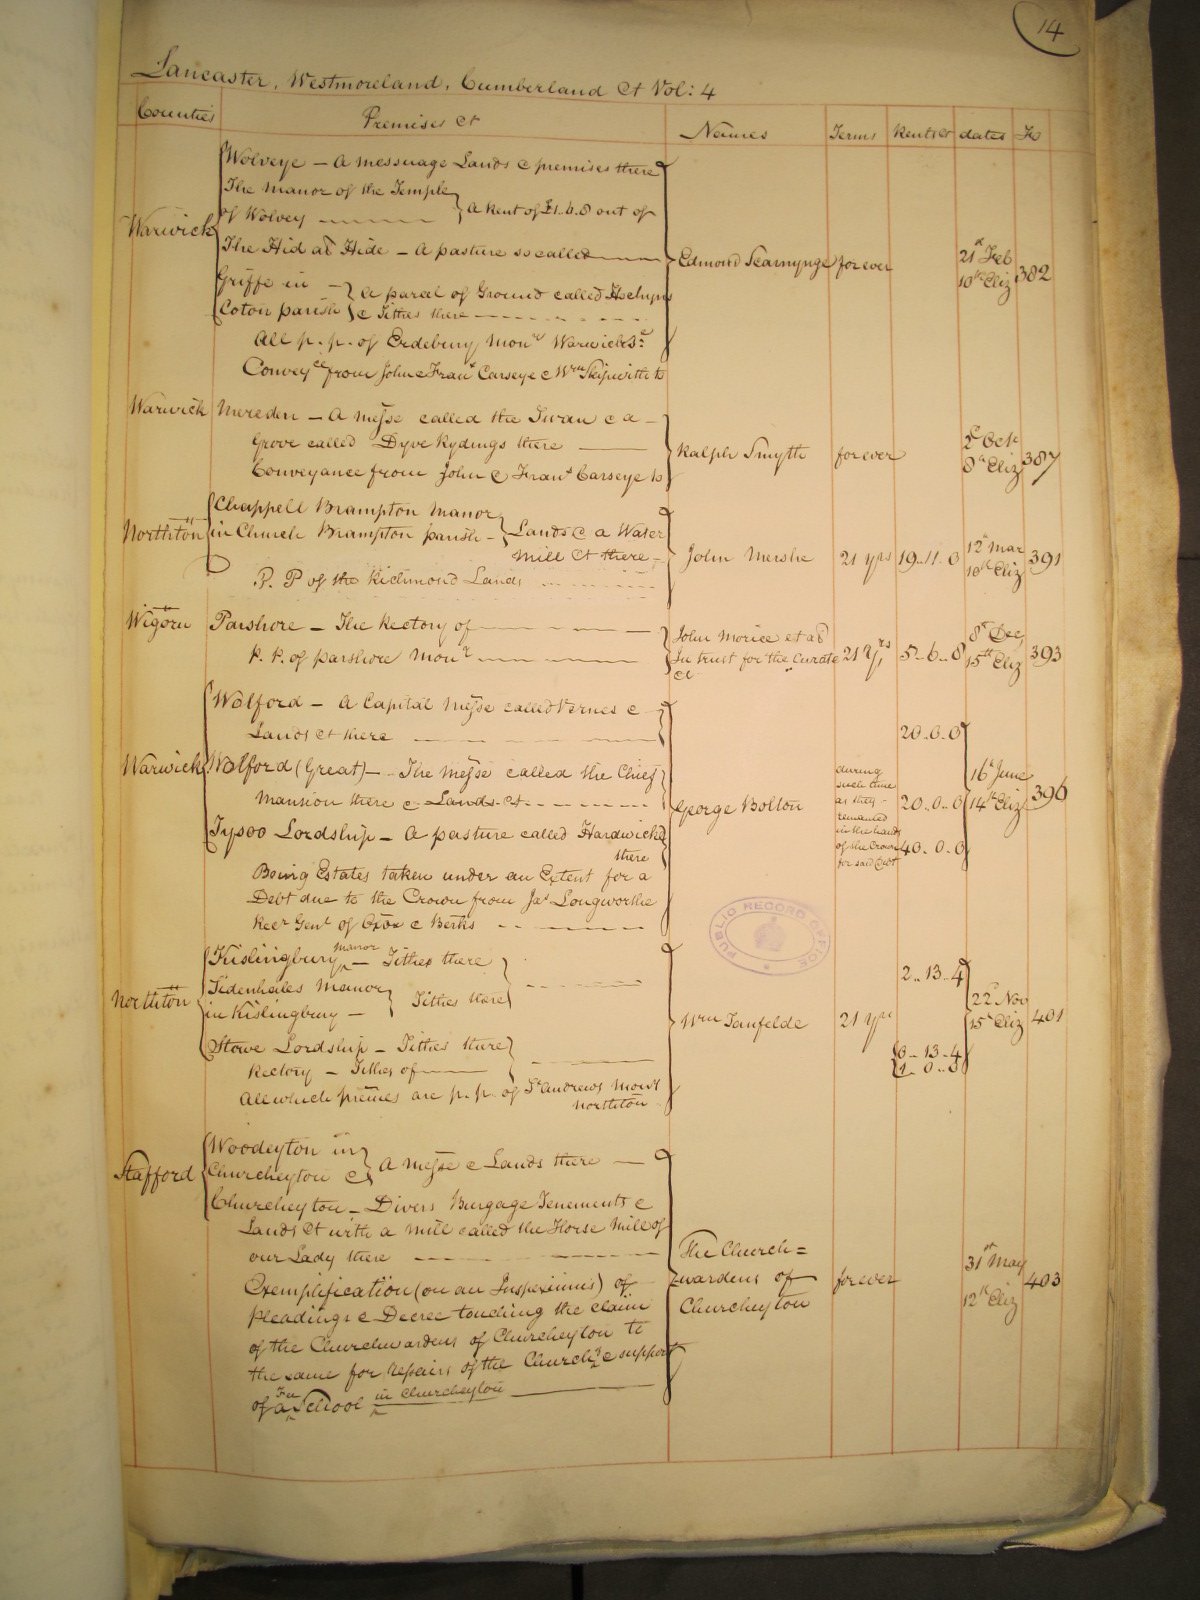 14
Lancaster, Westmoreland, Cumberland &c Vol: 4
Counties Premises &c Names Terms Rents &c dates Fo
Wolveye – A messuage Lands & premises there
The Manor of the Temple
of Wolvey } A Rent of £1.6.8 out of
Warwick
The Hid als Hide – A pasture so called
Edmond Scarnynge for ever 21st Feb 10th Eliz 382
Griffe in
Coton parish } A parcel of Ground called
& Tithes there
All p. p. of Erdebury Monry Warwicks:
Conveyce from John & Frans Carseye & Wm Skipwith to
Warwick Mereden – A Messe called the Swan & a
Grove called Dyve Rydings there
Ralph Smyth for ever 2d Octr 8th Eliz 387
Conveyance from John & Frans Carseye to
Chappell Brampton Manor
Northton in Church Brampton parish – } Lands & a Water
Mill &c there
John Mershe 21 yrs 19..11..0 12th Mar 10th Eliz 391
P. P of the Richmond Lands
Wigorn Parshore – The Rectory of
P. P. of parshore Monry
John Morice et als
In trust for the Curate
&c
21 Yrs 5..6..8 8th Dec 15th Eliz 393
Wolford – A Capital Messe called Vernes &
Lands &c there
20..0..0
Warwick Wolford (Great) – The Messe called the Chief
Mansion there & Lands &c
George Bolton
during
such time
as they
remained
in the hands
of the Crown
for said Debt
20..0..0
16th June 14th Eliz 396
Tysoo Lordship – A pasture called Hardwicke
there
40..0..0
Being Estates taken under an Extent for a
Debt due to the Crown from Jas Longworthe
Recr Genl of Oxon & Berks
Kislingbury manor – Tithes there
2..13..4
Northton Tedenhales Manor
in Kislingbury – } Tithes there
Wm Tanfelde 21 yrs 22d Nov 15th Eliz 401
Stowe Lordship – Tithes there
0..13..4
Rectory – Tithes of
1..0..0
All which premes are p. p. of St Andrews Mony
Northton
Stafford Woodeyton in
Churcheyton & } A Messe & Lands there
Churcheyton – Divers Burgage Tenements &
Lands &c with a mill called the Horse Mill of
our Lady there
The Church=
wardens of
Churcheyton
for ever 31st May 12th Eliz 403
Exemplification (on an Inspeximus) of
Pleadings & Decree touching the claim
of the Churchwardens of Churcheyton to
the same for repairs of the Church & support
of a Free School in Churcheyton
PUBLIC RECORD OFFICE